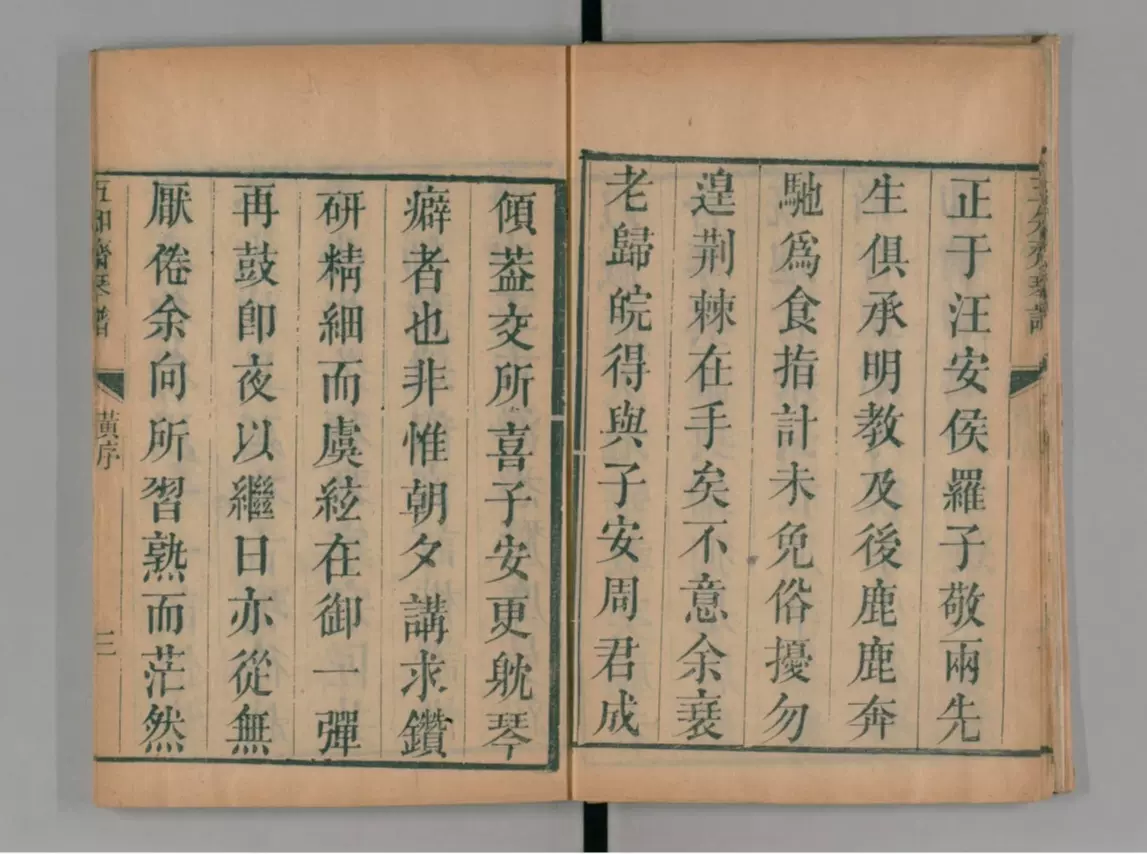 正于汪安侯羅子敬兩先
生俱承明教及後鹿鹿奔
馳爲食指計未免俗擾勿
遑荆棘在手矣不意余衰
老歸皖得與子安周君成
傾葢交所喜子安更躭琴
癖者也非惟朝夕講求鑽
研精細而虞絃在御一彈
再鼓卽夜以繼日亦從無
厭倦余向所習熟而茫然
琴譜
黃序
三